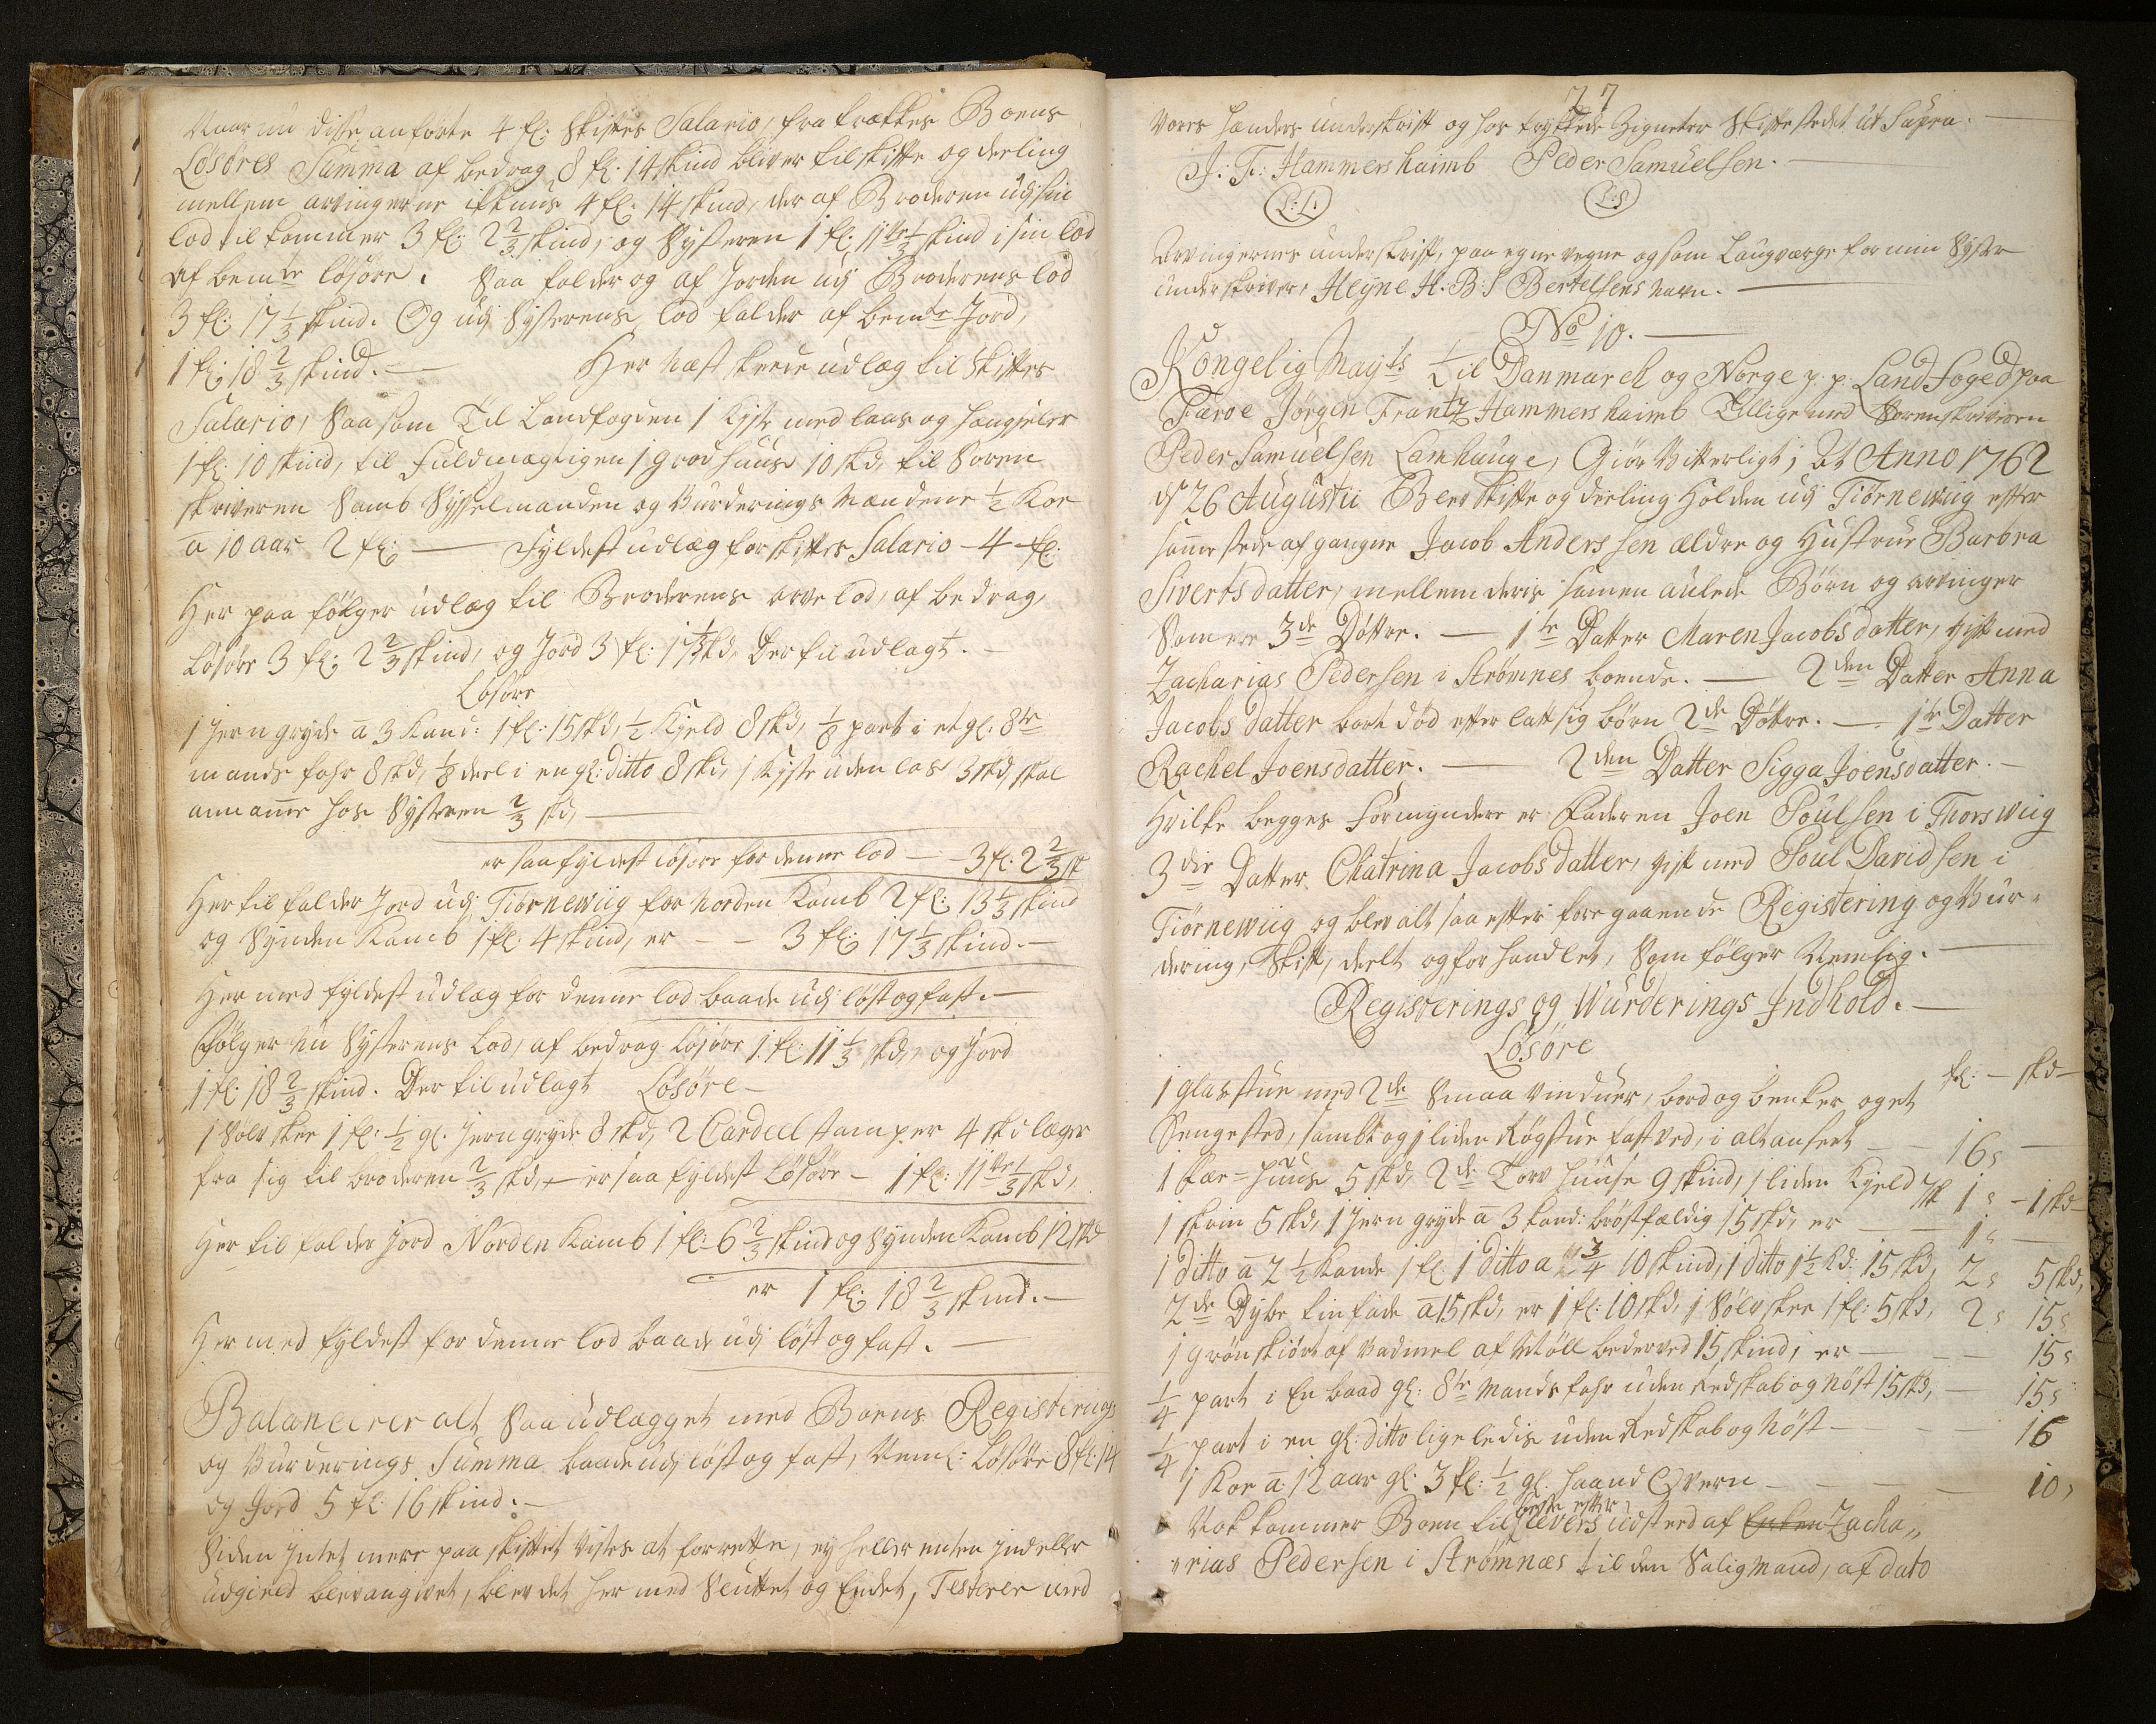 Naar nu disse anförte 4 fl: Skiftes Salario, fra trækkes Boens
Løsöres Summa af bedrag 8 fl: 14 skind bliver til skifte og deeling
mellem arvingerne ickuns 4 fl: 14 skind, der af Broderen udj sin
lod til kommer 3 fl: 2 2/3 skind, og Systeren 1 fl: 11 1/3 skind i sin lod
af bemte løsöre. Saa falder og af Jorden udj Broderens lod
3 fl: 17 1/3 skind. Og udj Systerens lod falder af bemte Jord,
1 fl: 18 2/3 skind. — Her næst skeede udlæg til Skiftes
Salario, Saasom Til Landfogden 1 Kiste med laas og hængseler
1 fl: 10 skind, til Fuldmægtigen 1 grod huus 10 skd, til Soren
skriveren Samb Sysselmanden og Vurderings Mændene 1/2 Koe
a 10 aar 2 fl: — Fyldest udlæg for skiftes Salario - 4 fl:
Her paa fölger udlæg til Broderens arve lod, af bedrag,
Løsöre 3 fl: 2 2/3 skind, og Jord 3 fl: 17 1/3 skd, Der til udlagt. —
Løsöre
1 Jern gryde a 3 Kand: 1 fl: 15 skd, 1/2 Kjeld 8 skd, 1/8 part i et gl: 8te
mands fahr 8 skd, 1/8 deel i en gl: ditto 8 skd, 1 Kiste uden las 3 skd, skal
annamme hos Systeren 2/3 skd, —
er saa fyldest løsöre for denne lod — 3 fl: 2 2/3 sk
Her til falder Jord udj Tiörnewiig for Norden Kamb 2 fl: 13 1/3 skind
og Synden Kamb 1 fl: 4 skind, er — — 3 fl: 17 1/3 skind. —
Her med fyldest udlæg for denne lod baade udj løst og fast. —
Fölger nu Systerens lod, af bedrag løsöre 1 fl: 11 1/3 skd, og Jord
1 fl: 18 2/3 skind. Der til udlagt Løsöre —
1 Sölv skee 1 fl: 1/2 gl: Jern gryde 8 skd, 2 Cardeel stamper 4 skd læger
fra sig til broderen 2/3 skd, — er saa fyldest løsöre — 1 fl: 11 1/3 skd,
Her til falder Jord Norden Kamb 1 fl: 6 2/3 skind og Synden Kamb 12 skd
er 1 fl: 18 2/3 skind. —
Her med fyldest for denne lod baade udj løst og fast. —
Balancerer alt Saa udlægget med Boens Registerings
og Vurderings Summa baade udj løst og fast, Neml: Løsöre 8 fl: 14
og Jord 5 fl: 16 skind. —
Siden Jntet mere paa skiftet vistes at forrette, ey heller enten Jnd eller
udgield blev angivet, blev det her med Sluttet og Endet, Testerer med
27
vores hænders underskrift og hos trykkede Zigneter Skiftestedet ut Supra. —
J: F: Hammershaimb Peder Samuelsen. —
L: S. L: S
Arvingernes underskrift, paa egne vegne og som Laugværge for min Syster
underskriver, Heyne H. B: S Bertelsens Navn. —
No 10. —
Kongelig Mayts til Danmarck og Norge p. p. Land Foged paa
Færoe Jørgen Frantz Hammershaimb Tillige med Sorenskriveren
Peder Samuelsen Lamhauge, Giör Vitterligt, At Anno 1762
d 26 Augustii Blev Skifte og deeling Holden udj Tiörnewiig efter
samme stæds afgangne Jacob Anderssen ældre og Hustrue Barbra
Sivertsdatter, mellem deris samen aulede Börn og arvinger
Som ere 3de Döttre. — 1te Datter Maren Jacobsdatter, gift med
Zacharias Pedersen i Strömnes boende. — 2den Datter Anna
Jacobsdatter bort död efterlatt sig börn 2de Döttre. — 1te Datter
Rachel Joensdatter. — 2den Datter Sigga Joensdatter. —
Hvilke begges Formyndere er Faderen Joen Poulsen i Thorswiig
3die Datter Chatrina Jacobsdatter, gift med Poul Davidsen i
Tiörnewiig og blev alt saa efter foregaaende Registering og Vur-
dering, Skift, deelt og for handlet, Som fölger Nemlig. —
Registerings og Wurderings Jndhold. —
Løsöre
fl: — skd —
1 glas stue med 2de Smaa vinduer, bord og benker og et
Sengested, samt og 1 liden Rögstue fast ved, i alt anseet — 16 s —
1 Fær-huus 5 skd, 2de Torv huuse 9 skind, 1 liden Kjeld 7 sk 1 s — 1 skd
1 skrin 5 skd, 1 Jern gryde a 3 kand: bröstfældig 15 skd, er — 1 s —
1 ditto a 2 1/2 Kande 1 fl: 1 ditto a 3/4 10 skind, 1 ditto 1 1/2 Kd: 15 skd, 2 s 5 skd,
2de Dybe tinfade a 15 skd, er 1 fl: 10 skd, 1 Sölv skee 1 fl: 5 skd, 2 s 15 s
1 grön skiört af Vadmel af Möll bederved 15 skind, er — — 15 s
1/4 part i En baad gl: 8te Mands fahr uden Redskab og Nöst 15 skd, — 15 s
1/4 part i en gl: ditto lige ledis uden Redskab og Nöst — — 16
1 Koe a 12 aar gl: 3 fl: 1/2 gl: haand Qvern — — 10,
Nok kommer Boen til leevers udsted af Enken Zacha„
„rias Pedersen i Strömnæs til den Salig Mand, af dato